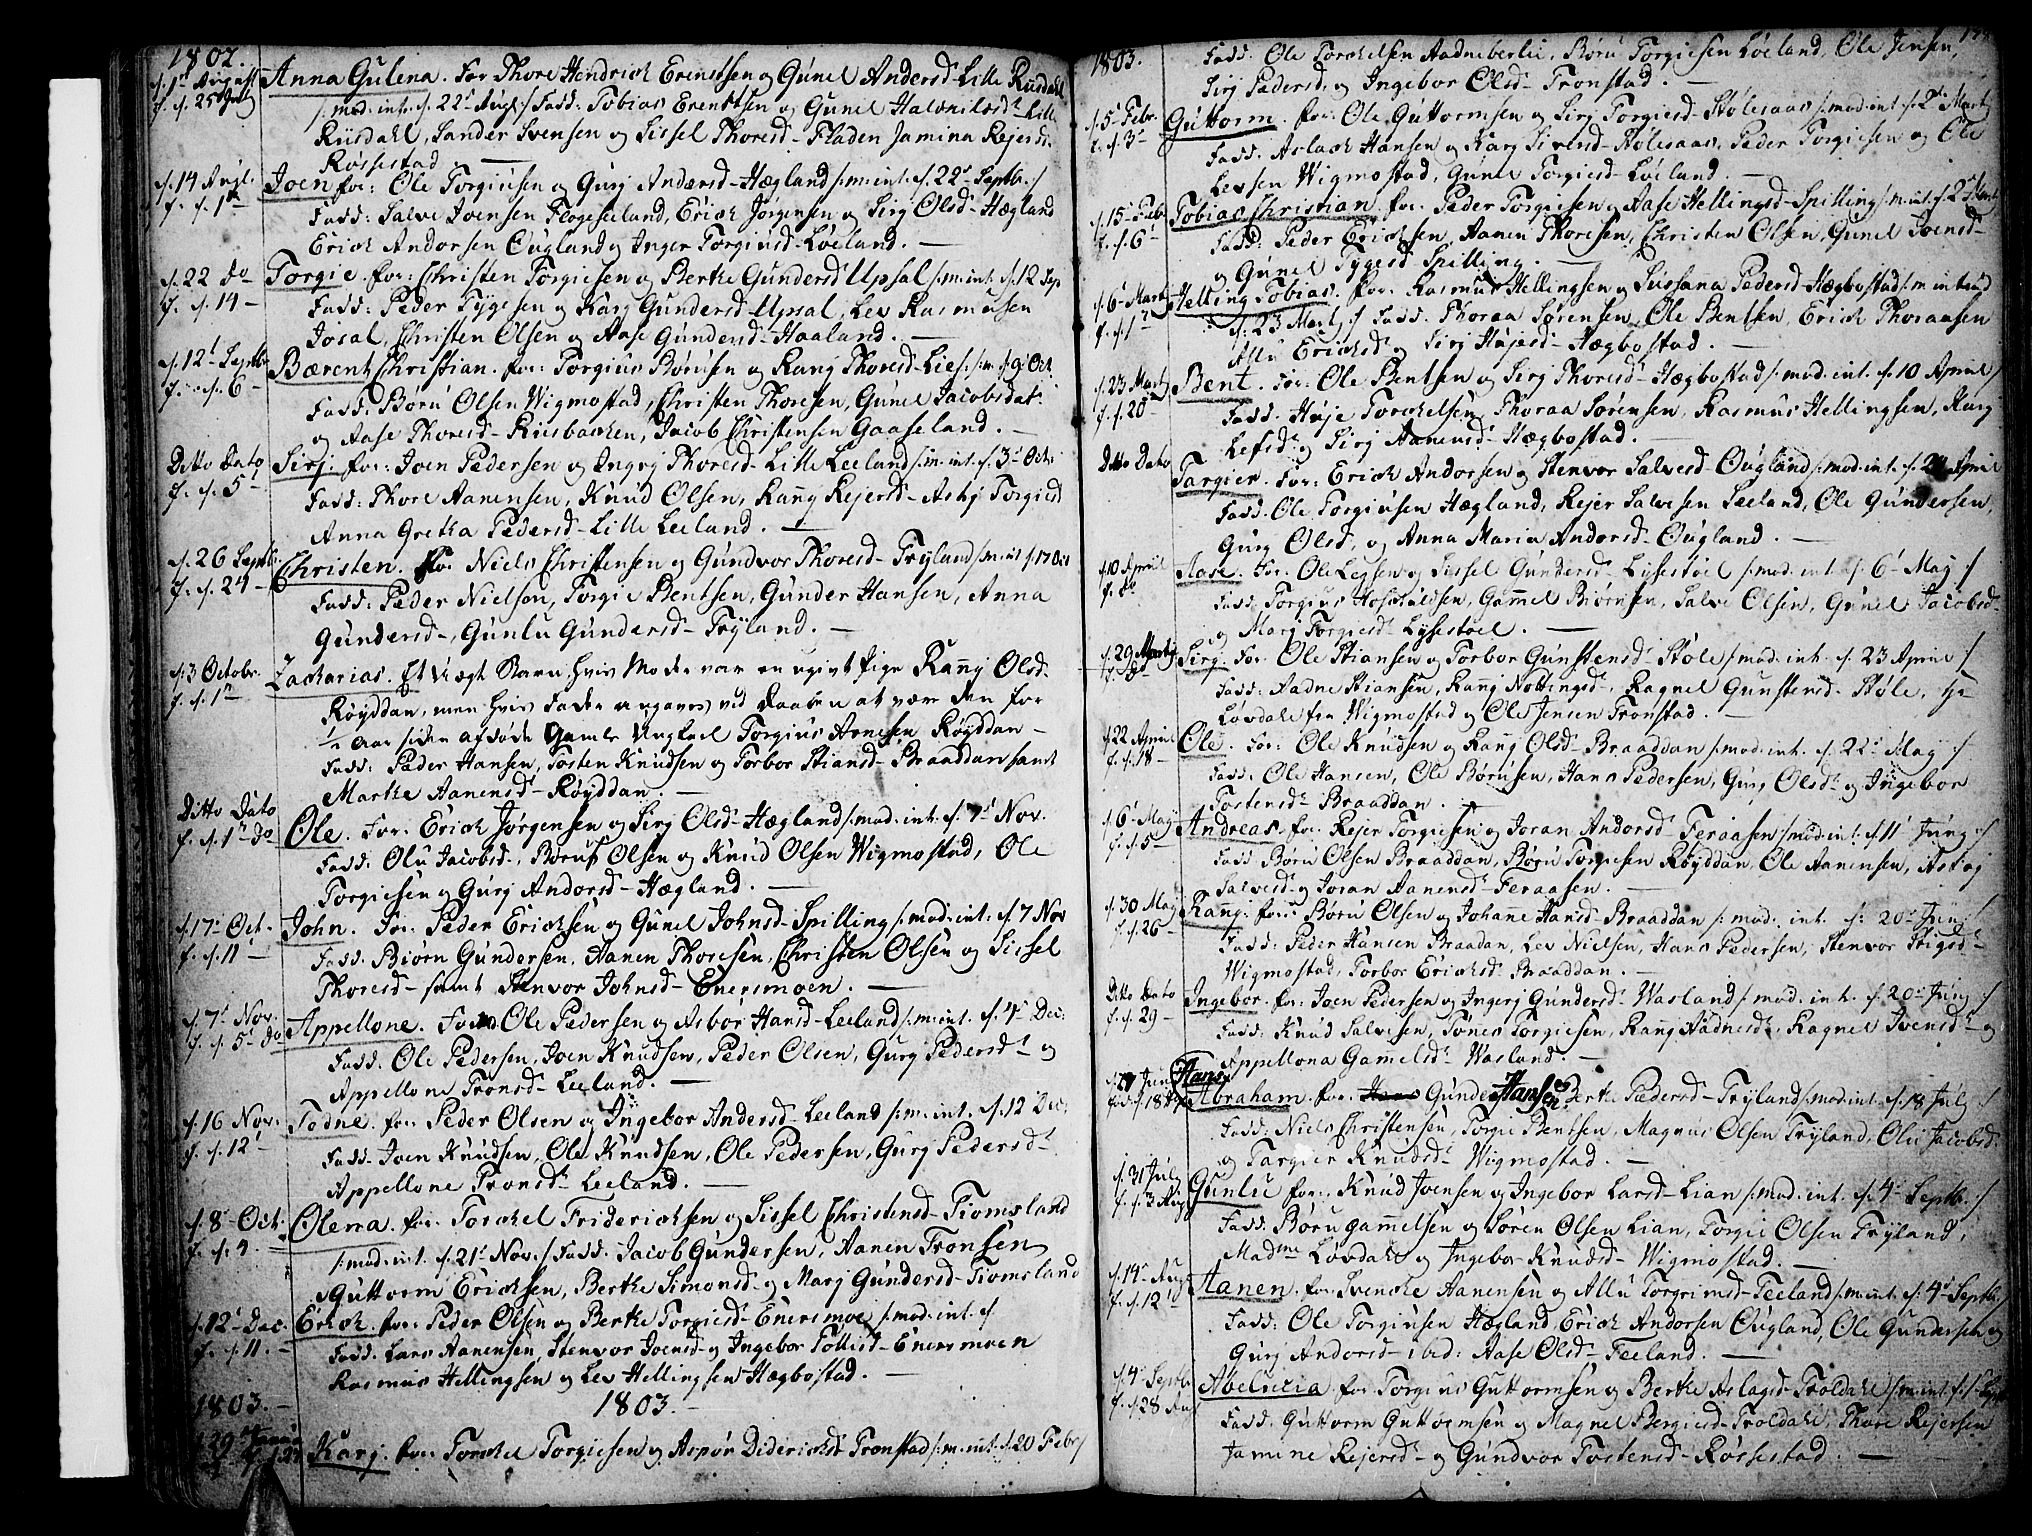 1802.
d. 1t August Anna Gulena. For Thore Hendrich Erentsen og Gunel Andersd- Lille Rusdahl
f. d. 25t July /: mod. int. d. 22t Aug: / Fadd: Tobias Erentsen og Gunel Halvenilsd- Lille
Rusdahl, Sander Svensen og Sissel Thoresd- Fladen Jamina Rejersd-
Rossestad. —
d. 14 Augt. Joen for: Ole Torgiusen og Gurj Andersd- Hægland /: m: int. d. 22t Septbr. /
f. d. 1t Fadd: Salve Joensen Flogeseeland, Erich Jørgensen og Sirj Olsd- Hægland
Erich Andorsen Øugland og Inger Torgiusd- Løeland. —
d. 22 do Torgie. for: Christen Torgiesen og Berthe Gundersd Upsal /: m: int. d. 12 Sep
f. d. 14 — Fadd: Peder Tygesen og Karj Gundersd- Upsal, Lev Rasmusen
Josal, Christen Olsen og Aase Gundersd- Haaland. —
d. 12t Septbr Bærent Christian. for: Torgius Børusen og Ranj Thoresd- Lie /: m. d. 9 Oct.
f. d. 6 — Fadd: Børu Olsen Wigmostad, Christen Thoresen, Gunel Jacobsdat:
og Aase Thoresd- Riisbachen, Jacob Christensen Gaaseland. —
Ditto Dato Sirj. for: Joen Pedersen og Ingrj Thoresd- Lille Leeland /: m. int. d. 3t Oct:
f. d. 5t Fadd: Thore Aanensen, Knud Olsen, Ranj Rejersd- Ashj Torgiesd
Anna Gretha Pedersd- Lille Leeland. —
d. 26 Septbr: Christen. For Niels Christensen og Gundvor Thoresd- Tryland /: m: int d. 17 Oct
f. d. 24 — Fadd: Peder Nielsen, Torgie Bentsen, Gunder Hansen, Anna
Gundersd-, Gunlu Gundersd- Tryland. —
d. 3 Octobr. Zacharias. Et Uægt Barn hvis Moder var en ugivt Pige Ranj Olsd-
f. d. 1t Røyddan, men hvis Fader angaves ved Daaben at være den for
1/2 Aar siden afdøde Gamle Ungkarl Torgius Arnesen Røyddan —
Fadd: Peder Hansen, Tosten Knudsen og Torbor Stiansd- Braaddan samt
Marthe Aanensd- Røyddan. —
Ditto Dato Ole. For: Erich Jørgensen og Sirj Olsd- Hægland /: mod. int. d. 7t Nov.
f. d. 1t do Fadd. Olu Jacobsd-, Børu Olsen og Knud Olsen Wigmostad, Ole
Torgiesen og Gurj Andorsd- Hægland. —
d. 17t Oct. John. For Peder Erichsen og Gunel Johnsd- Spilling /: mod: int: d. 7 Nov
f. d. 11t Fadd: Biørn Gundersen, Aanen Thoresen, Christen Olsen og Sissel
Thoresd- samt Stenvor Johnsd- Enersmoen. —
d. 7t Nov. Appellone. For Ole Pedersen og Asbor Hansd- Leeland /: m: int. d. 4t Dec:
f. d. 5t do Fadd. Ole Pedersen, Joen Knudsen, Peder Olsen, Gurj Pedersdt og
Appellone Tronsd- Leeland. —
d. 16 Nov: Todne. for: Peder Olsen og Ingebor Andersd- Leeland /: m: int. d. 12 Dec:
f. d. 12t Fadd- Joen Knudsen, Ole Knudsen, Ole Pedersen, Gurj Pedersdt
Appellone Tronsdt Leeland. —
d. 8t Oct: Olena. for: Torchel Friderichsen og Sissel Christensd- Tiomsland
f. d. 4. — /: mod: int. d. 21t Nov. / Fadd: Jacob Gundersen, Aanen Tronsen
Guttorm Erichsen, Berthe Simonsd- og Marj Gundersd- Tiomsland
d. 12t Dec. Erich. for: Peder Olsen og Berthe Torgiesd- Enersmoe /: mod. int. d
f. d. 11. — Fadd. Lars Aanensen, Stenvor Joensd- og Ingebor Tollisd- Enersmoen
Rasmus Hellingsen og Lev Hellingsen Hægbostad. —
1803. — 1803. —
d. 29 Karj. for: Torchel Torgiesen og Aspor Diderichsdt Tronstad /: m: int. d. 20 Febr /
1803. Fadd. Ole Torchelsen Aadneberlie, Børu Torgiesen Løeland, Ole Jensen,
Sirj Pedersd- og Ingebor Olsd- Tronstad. —
d. 5t Febr. Guttorm. for: Ole Guttormsen og Sirj Torgiesd- Stølesaas /: mod: int d. 2t Martj
f. d. 3t Fadd. Aslach Hansen og Karj Siversd- Aalesaas, Peder Torgiesen og Ole
Levsen Wigmostad, Gunlu Torgiesd- Løeland. —
d. 15t Feb Tobias Christian. for. Peder Torgiesen og Aase Hellingsd- Spilling /: m: int. d. 2t Mart
f. d. 6t Fadd: Peder Erichsen, Aanen Thoresen, Christen Olsen, Gunel Joensd-
og Gunel Tygesd- Spilling. —
d. 6t Martj Helling Tobias. for. Rasmus Hellingsen og Sussana Pedersd- Hægbostad /: m introd
f. d. 1t d. 23 Martj / Fadd. Thoraa Sørensen, Ole Bentsen, Erich Thoraasen
Allu Erichsd- og Sirj Hujesd- Hægbostad. —
d. 23 Martj Bent. For: Ole Bentsen og Sirj Thoresd- Hægbostad /: mod: int. d. 10 April /
f. d. 20 — Fadd. Huje Torchelsen, Thoraa Sørensen, Rasmus Hellingsen, Karj
Lefsdt og Sirj Aanensd- Hægbostad. —
Ditto Dato Targier. For: Erich Andorsen og Stenvor Salvesd- Øugland /: mod: int. d. 24 April
Fadd. Ole Torgiusen Hægland, Rejer Salvesen Leeland, Ole Gundersen,
Gurj Olsdt og Anna Maria Andorsd- Øugland. —
d. 10 April Aase. For: Ole Levsen og Sissel Gundersd- Lysestøel /: mod: int. d. 6t Maj /
Fadd. Torgius Hoskuldsen, Gammel Biørnsen, Salve Olsen, Gunel Jacobsd-
og Marj Torgiesdt Lysestøel. —
d. 29 Martj Sirj. For. Ole Stiansen og Torbor Gunstensd- Støle /: mod: int. d. 23 April /
Fadd: Aadne Stiansen, Ranj Nottingsdt, Ragnel Gunstensd- Støle, Hr
Løvdahl fra Wigmostad og Ole Jensen Tronstad. —
d. 22 April Ole. For: Ole Knudsen og Ranj Olsd- Braaddan /: mod: int. d. 22t Maj /
f. d. 18 — Fadd: Ole Hansen, Ole Børusen, Hans Pedersen, Gurj Olsdt og Ingebor
Tostensdt Braaddan. —
d. 6t Maj Andreas. for: Rejer Torgiesen og Joran Andorsd- Feraasen /: mod: int: d. 11t Junj /
f. d. 5t Fadd Børu Olsen Braaddan, Børu Torgiesen Røyddan, Ole Aanensen, Aslaug
Salvesd- og Joran Aanensd- Feraasen. —
d. 30 Maj Ranj. for: Børu Olsen og Johanne Hansd- Braaddan /: mod. int. d: 20t Junj
f. d. 26 — Fadd: Peder Hansen Braadan, Lev Nielsen, Hans Pedersen, Stenvor Stigsdt
Wigmostad, Torbor Erichsdt Braaddan. —
Ditto Dato Ingebor. for: Joen Pedersen og Ingerj Gundersdt Wasland /: mod: int. d. 20t Junj /
f. d. 29 — Fadd: Knud Salvesen, Tønes Torgiesen, Ranj Aadnesdt, Ragnel Ivensdt og
Appellona Gamelsdt Wasland. —
Hans
Abraham. for. Gunder Hansen Berthe Pedersd- Tryland /: mod: int. d. 18 July /
Fadd. Niels Christensen, Torgie Bentsen, Magnus Olsen Tryland, Olu Jacobsd-
og Targier Knudsdt Wigmostad. —
d. 31 July Gunlu for: Knud Joensen og Ingebor Larsd- Lian /: mod: int. d. 4t Septbr: /
f. d. 3 Aug Fadd. Børu Gammelsen og Søren Olsen Lian, Torgie Olsen Tryland,
Madme Løvdahl og Ingebor Knudsd- Wigmostad. —
d. 14t Aug Aanen. for: Svenche Aanensen og Allu Torgrimsd- Feeland /: m: int. d. 4t Septbr. /
f. d. 12t Fadd: Ole Torgiusen Hægland, Erich Andorsen Øugland, Ole Gundersen og
Gurj Andorsd- ibid: Aase Olsd- Feeland. —
d. 4t Septbr Abelucia. for Torgius Guttormsen og Berthe Aslagsd- Troldahl
f. d. 28 Aug Fadd: Guttorm Guttormsen og Magnel Bergiesd- Troldahl, Thore Rejersen
Jamine Rejersdt og Gundvor Tostensd- Rossestad. —